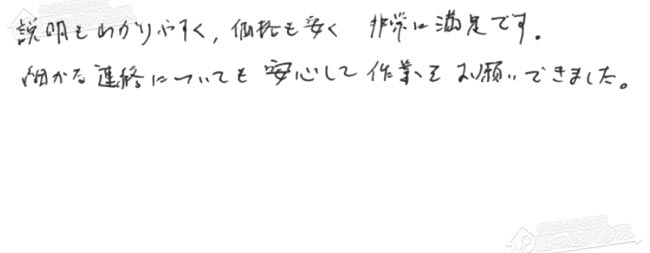 説明もわかりやすく,価格も安く 非常に満足です.
細かな連絡についても安心して作業をお願いできました。